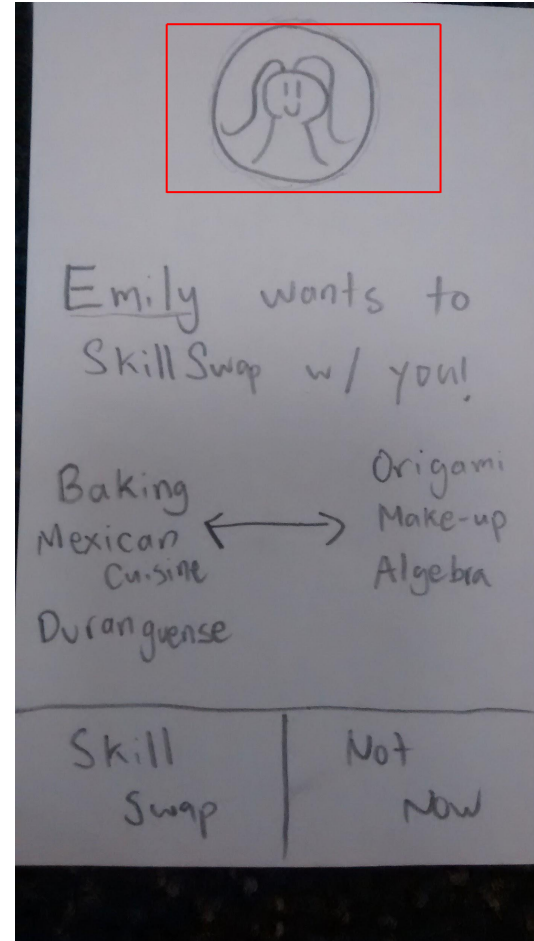 Emily wants to
SkillSwap w/ you!
Baking
Mexican
Cuisine
Duranguense
Origami
Make-up
Algebra
Skill
Swap
Not
Now